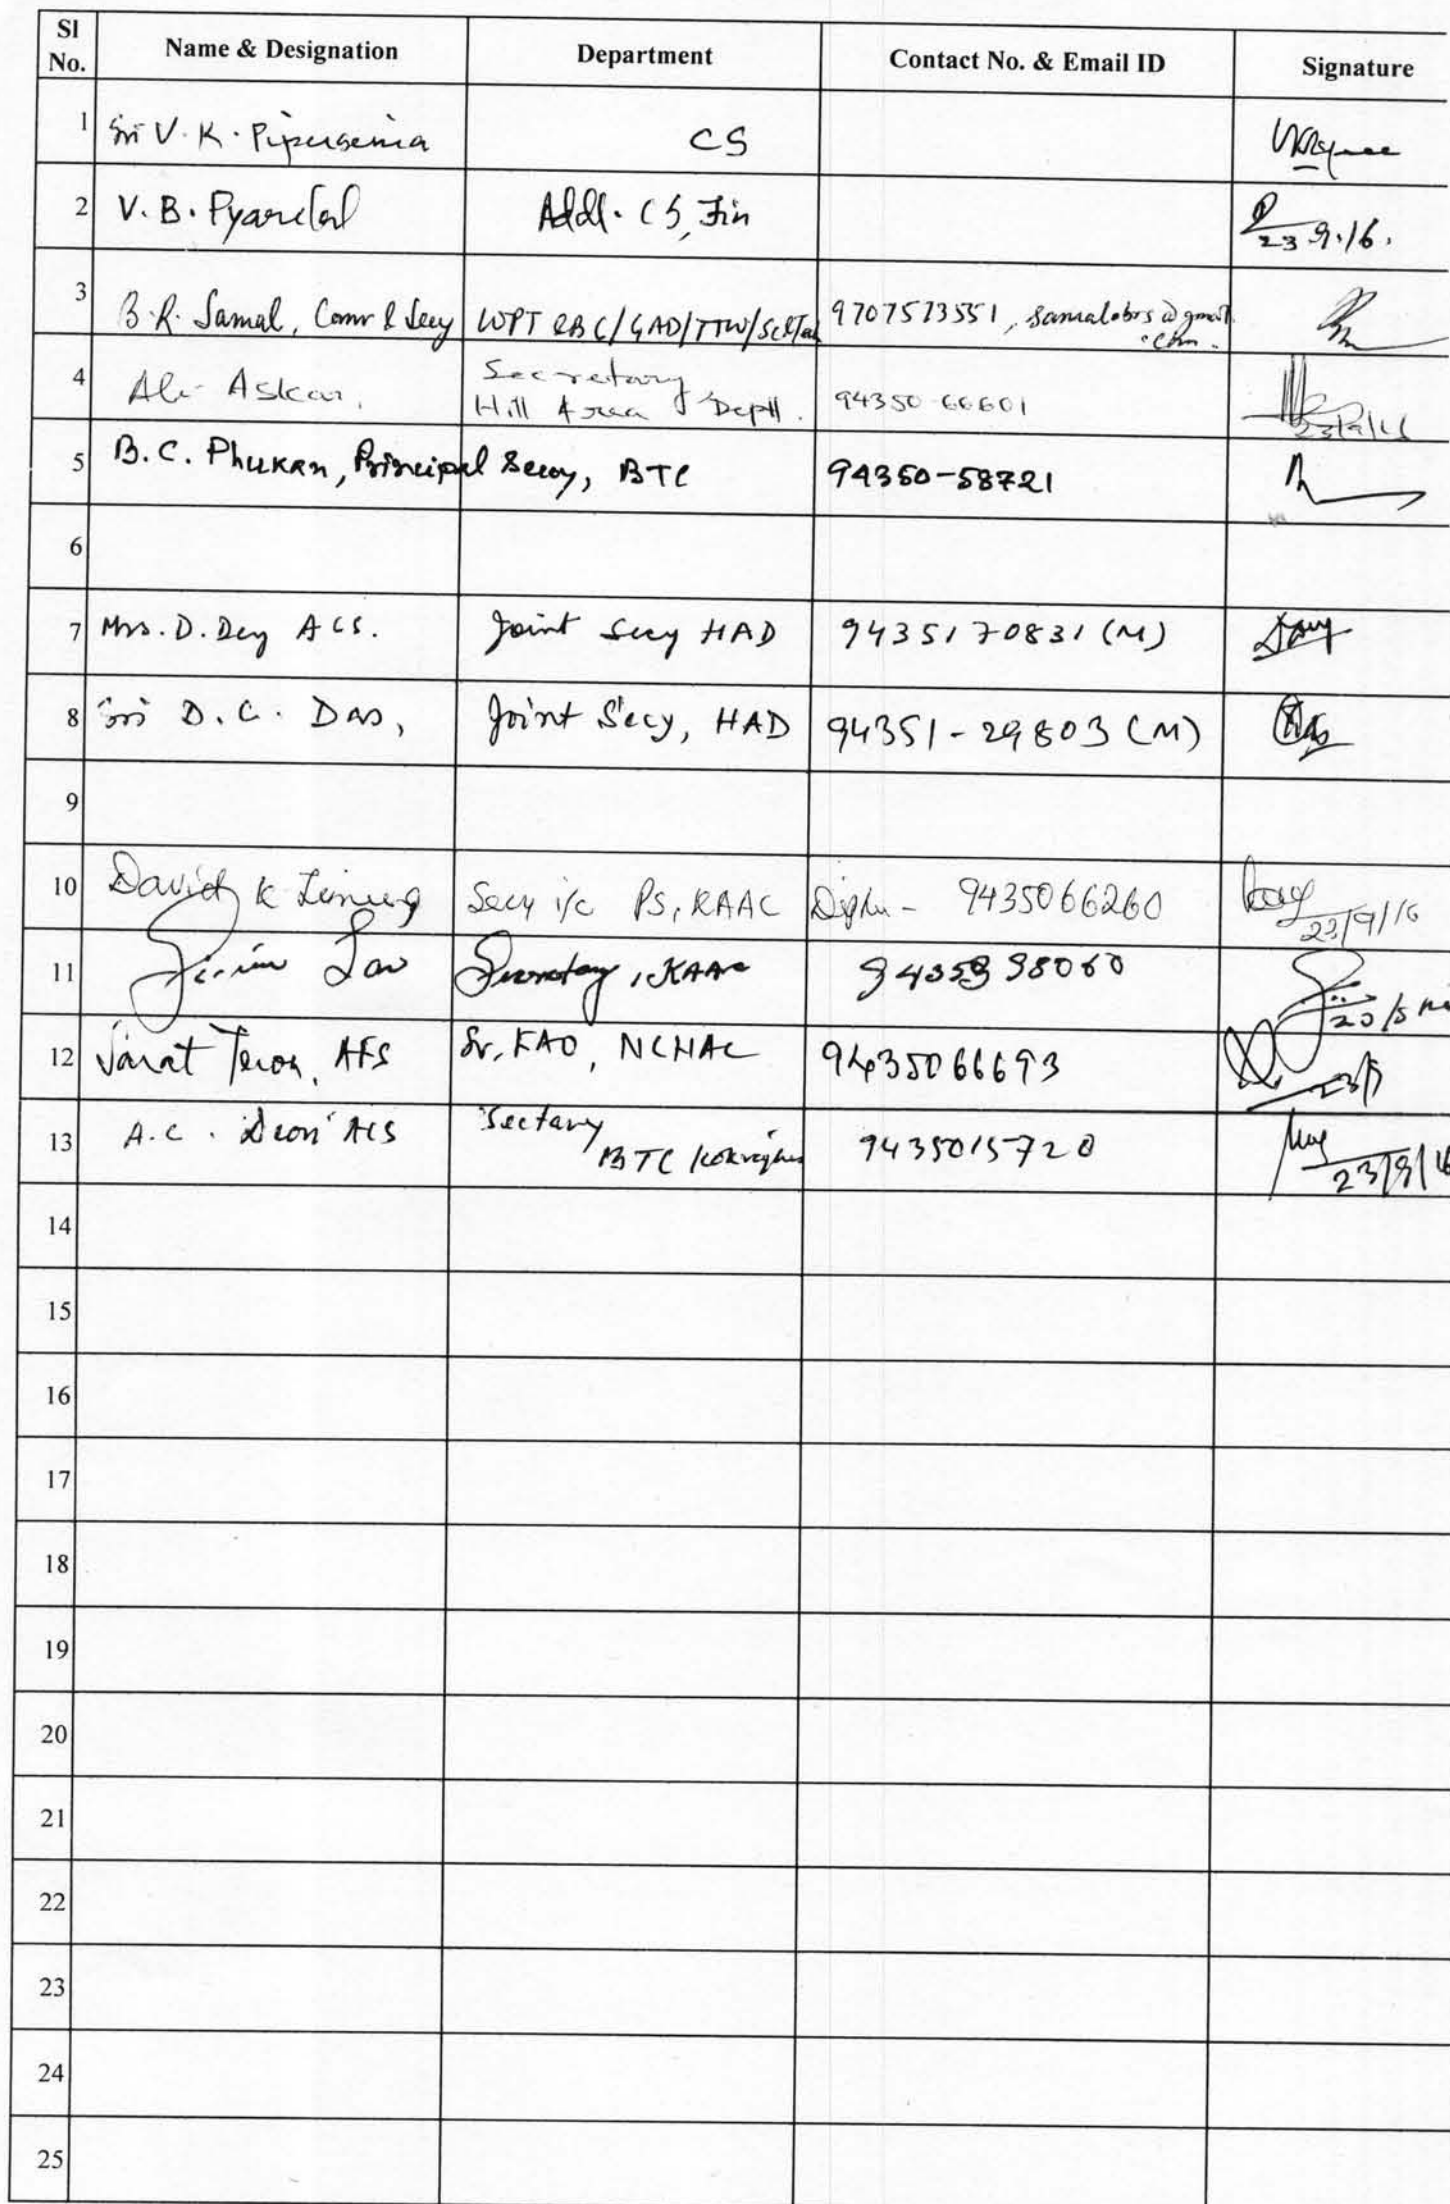 Sl No. Name & Designation Department Contact No. & Email ID Signature
1 Sri V. K. Pipersenia CS
2 V. B. Pyarelal Addl. CS, Fin 23.9.16.
3 B.R. Samal, Comr & Secy WPT &BC/GAD/TTW/ 9707573551, samalobrs@gmail.com
4 Ali Askar, Secretary Hill Area Deptt. 94350 66601 23/9/16
5 B.C. Phukan, Principal Secy, BTC 94350-58721
6
7 Mrs. D. Dey ACS. Joint Secy HAD 9435170831 (M)
8 Sri D. C. Das, Joint Secy, HAD 94351-29803 (M)
9
10 David K Secy i/c PS, KAAC Diphu - 9435066260 23/9/16
11 Secretary, KAAC
12 Sarat Teron, AFS Sr. FAO, NCHAC 9435066693
13 A.C. Deori ACS BTC 9435015720 23/9/16
14
15
16
17
18
19
20
21
22
23
24
25